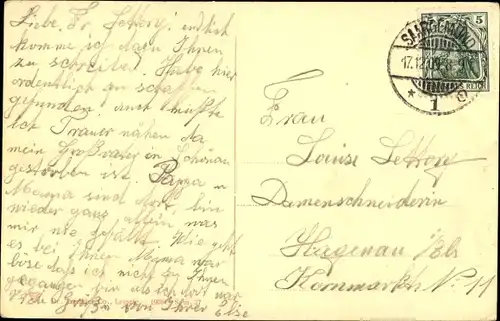 Liebe Fr. Settory! endlich
komme ich dazu Ihnen
zu schreiben. Habe hier
ordentlich zu schaffen
gefunden, auch mußte
ich Trauer nähen da
mein Großvater in Schönau
gestorben ist. Pappa u
Mamma sind dort, bin
wieder ganz allein was
mir nie gefällt. Wie geht
es bei Ihnen Mama war
böse daß ich nicht zu Ihnen
gegangen bin als ich dort war
Gruß von Ihrer Else
SAARGEMÜND
17.12.09
* 1
5
REICH
Frau
Louise Settory
Damenschneiderin
Hagenau i/Els
Kornmarkt No. 11